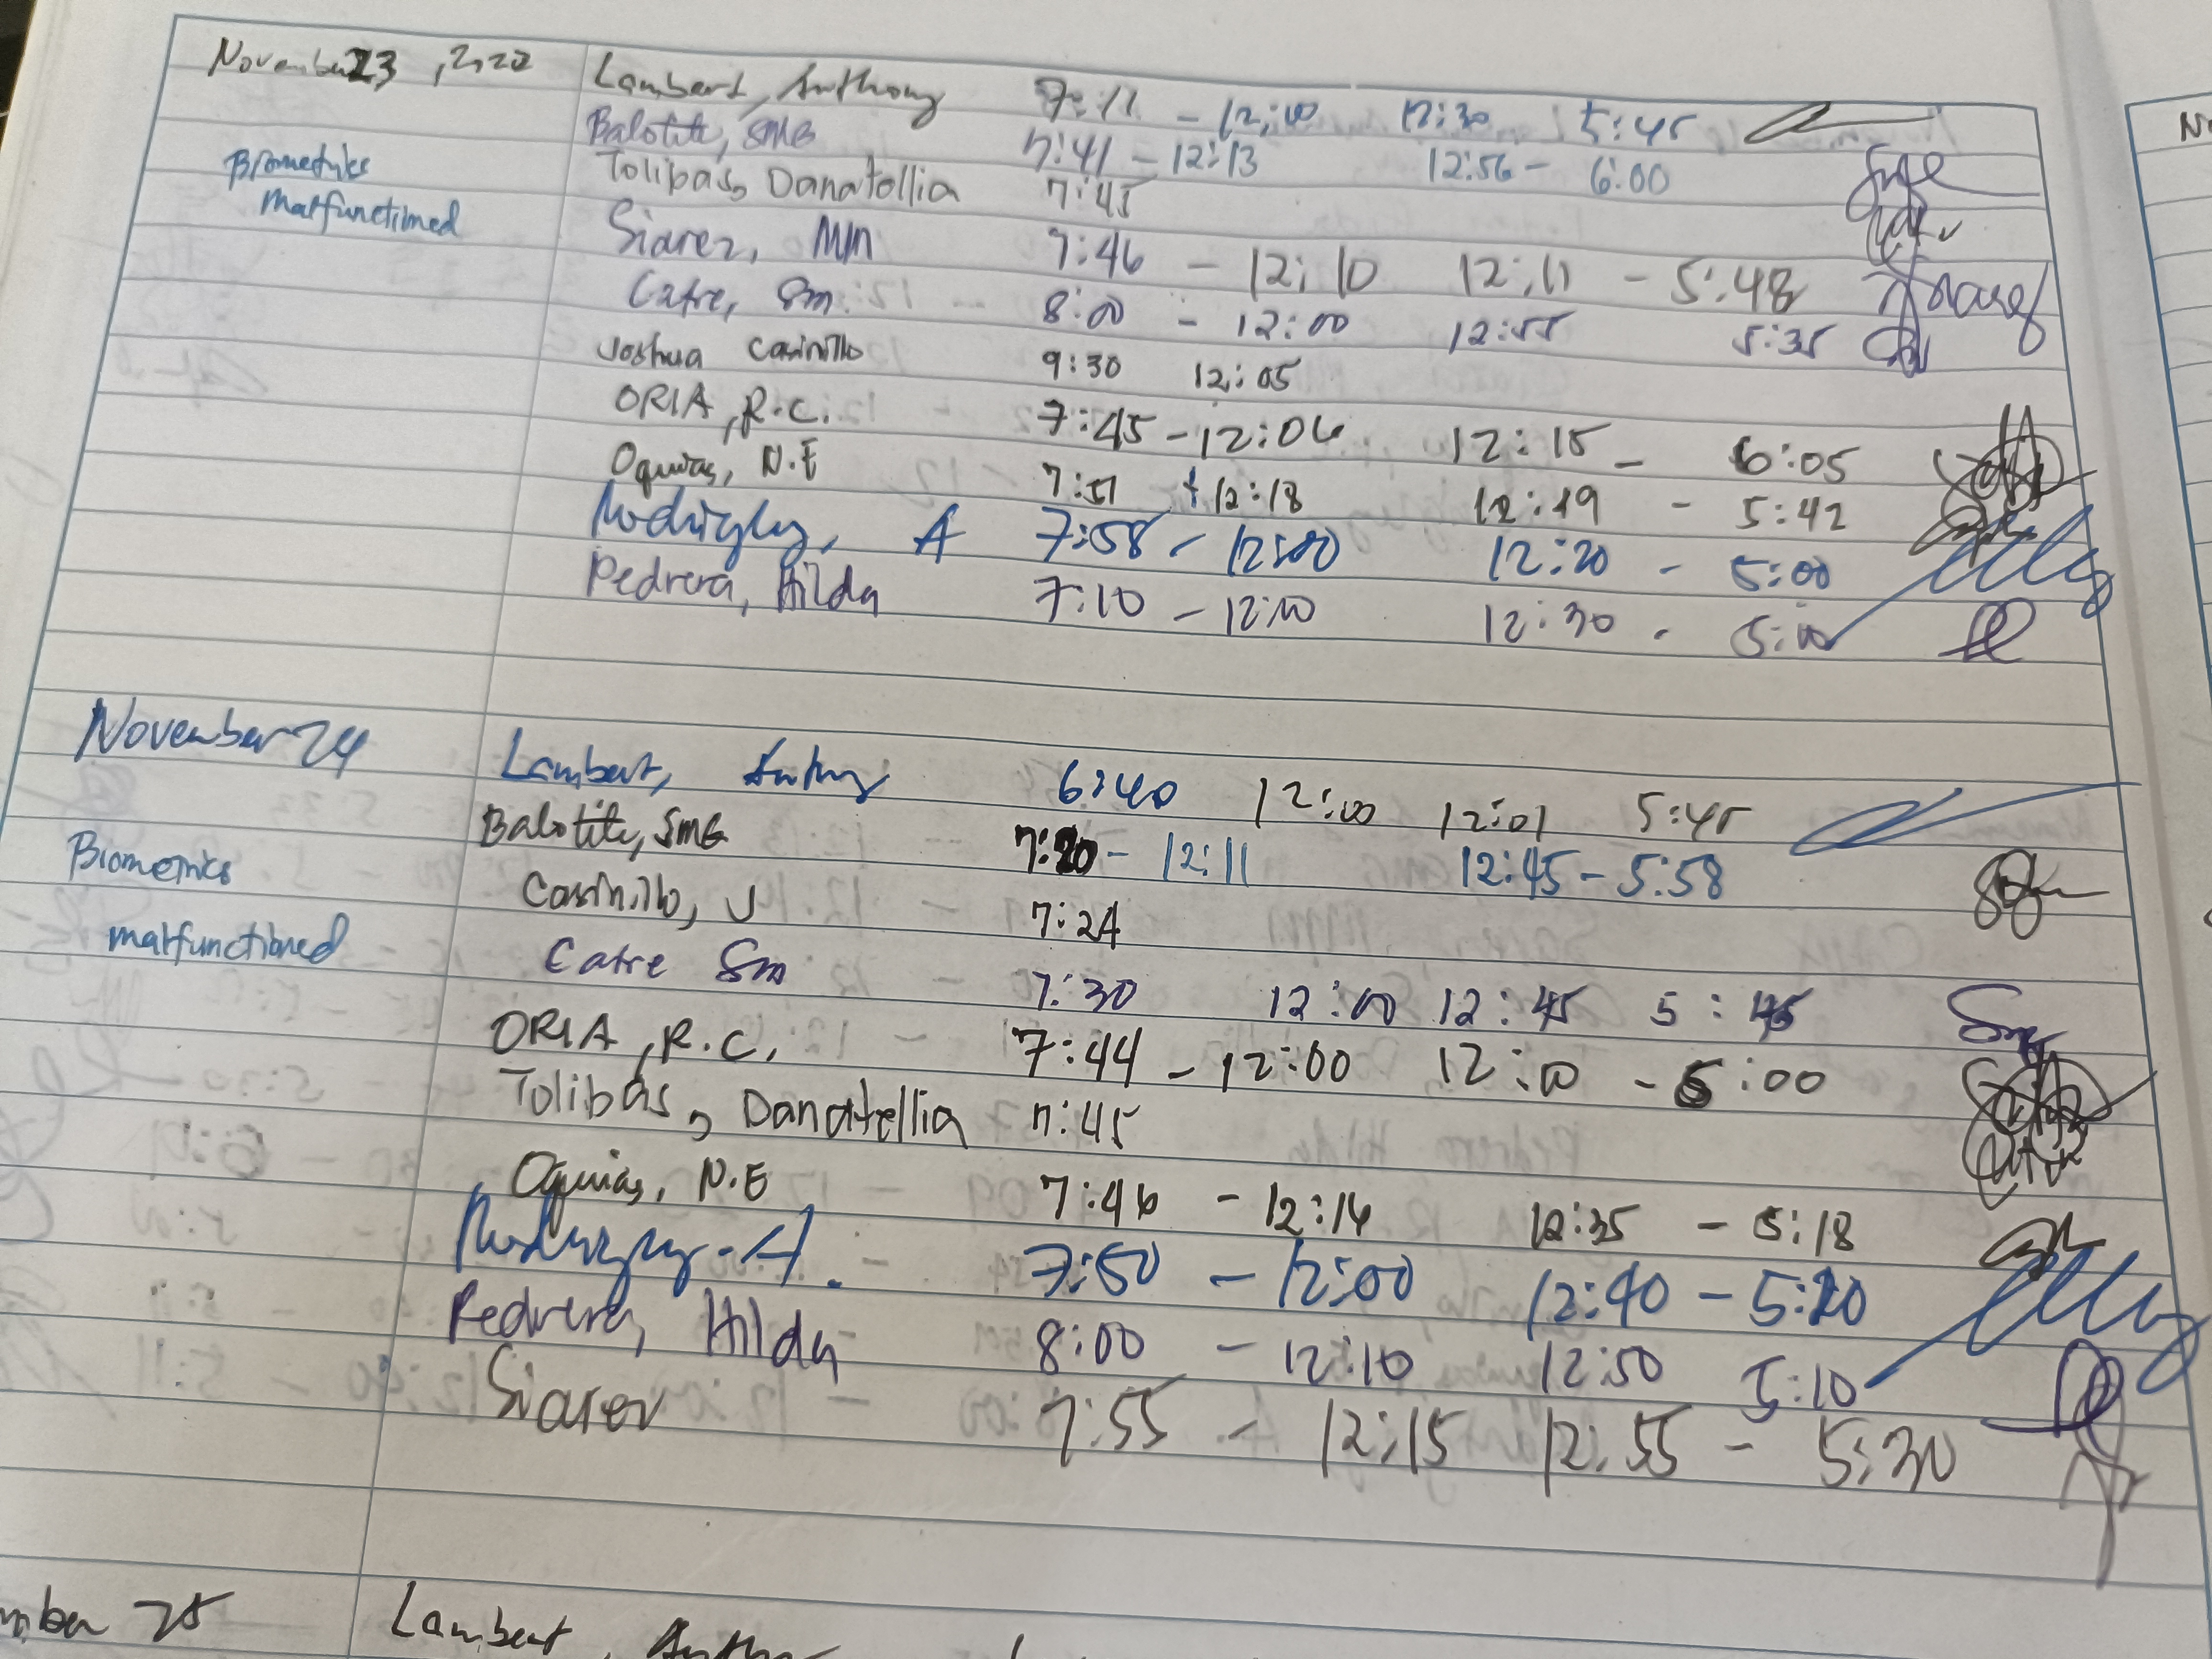 November 23, 2022 Lambert, Anthony 7:11 - 12:00 12:30 5:45
Balotite, SMG 7:41 - 12:13 12:56 - 6:00
Biometrics Tolibas, Danatellia 7:45
malfunctioned Siarez, MM 7:46 - 12:10 12:11 - 5:48
Catre, Sm. 8:00 - 12:00 12:55 5:35
Joshua Casinillo 9:30 12:05
ORIA, R.C. 7:45 - 12:06 12:15 - 6:05
Oquias, N.E 7:51 - 12:18 12:19 - 5:42
A 7:58 - 12:00 12:20 - 5:00
Pedrera, Hilda 7:10 - 12:00 12:30 - 5:00
November 24 Lambert, Anthony 6:40 12:00 12:01 5:45
Balotite, SMG 7:20 - 12:11 12:45 - 5:58
Biometrics Casinillo, J 7:24
malfunctioned Catre Sm 7:30 12:00 12:45 5:45
ORIA, R.C. 7:44 - 12:00 12:10 - 5:00
Tolibas, Danatellia 7:45
Oquias, N.E 7:46 - 12:16 12:35 - 5:18
A. 7:50 - 12:00 12:40 - 5:20
Pedrera, Hilda 8:00 - 12:10 12:50 5:10
Siarez 7:55 - 12:15 12:55 - 5:30
mber 25 Lambert, Antho